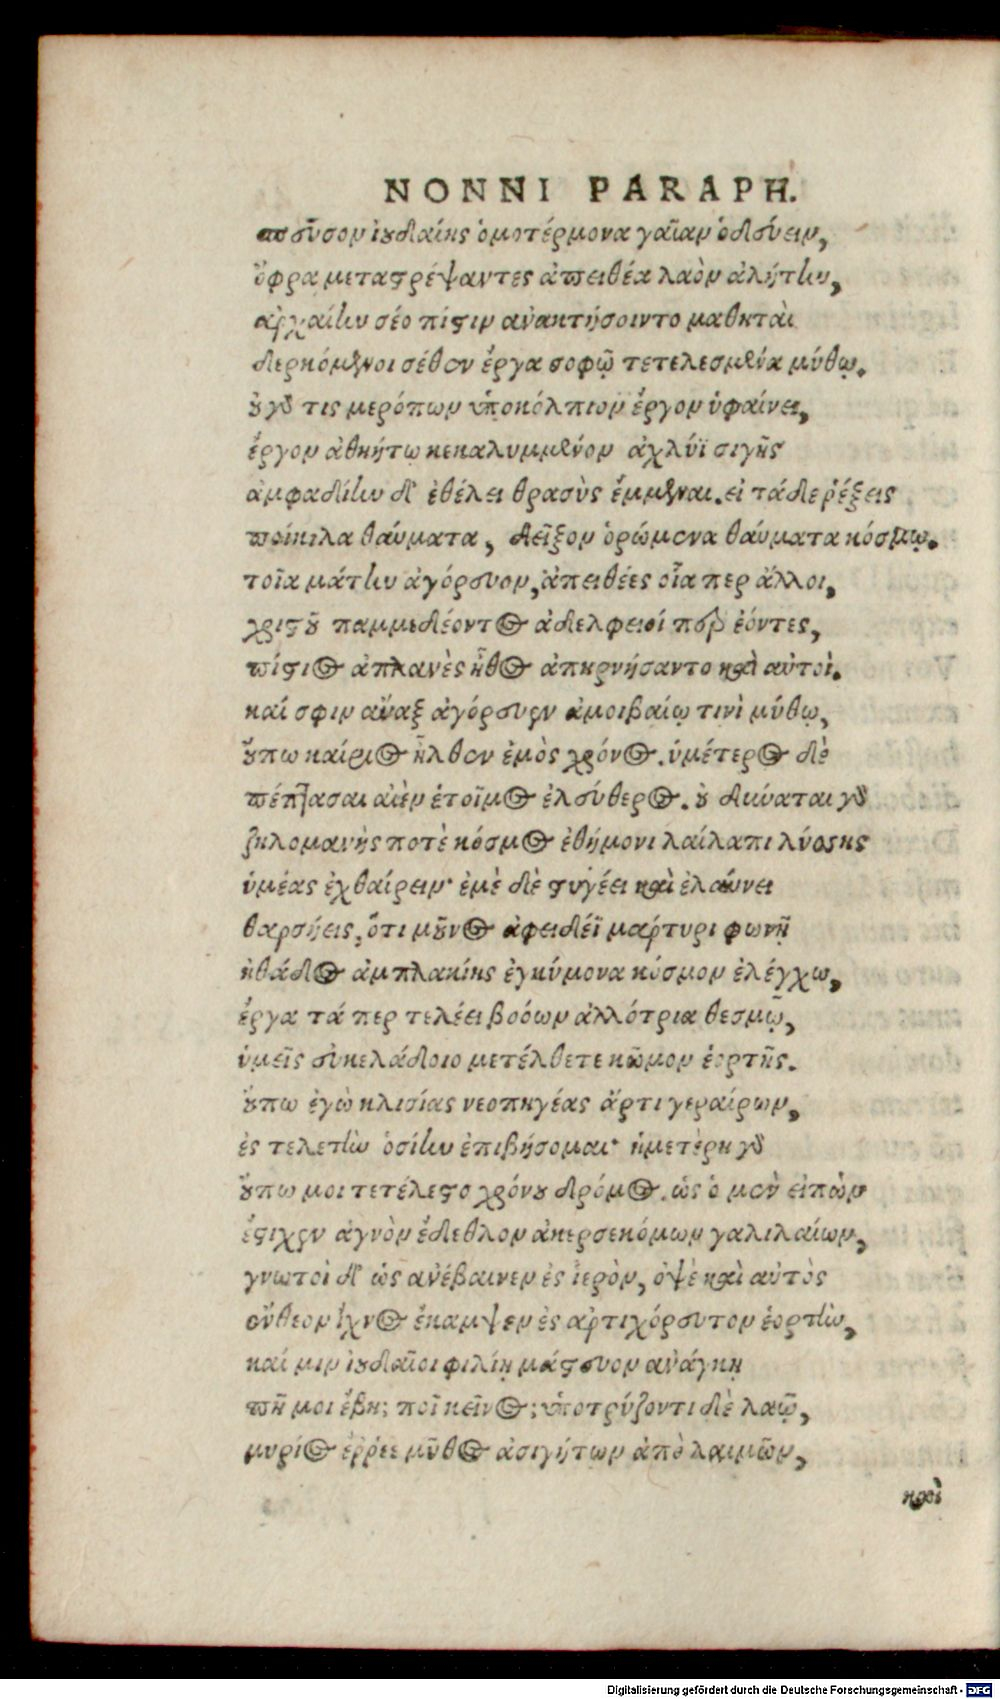 NONNI PARAPH.
σπεῦσον ἰουδαίης ὁμοτέρμονα γαῖαν ὁδεύειν,
ὄφρα μεταστρέψαντες ἀπειθέα λαὸν ἀλήτην,
ἀρχαίην σέο πίστιν ἀνακτήσοιντο μαθηταὶ
δερκόμενοι σέθεν ἔργα σοφῷ τετελεσμένα μύθῳ.
οὐ γάρ τις μερόπων ὑποκόλπιον ἔργον ὑφαίνει,
ἔργον ἀθηήτῳ κεκαλυμμένον ἀχλύϊ σιγῆς
ἀμφαδίην δ' ἐθέλει θρασὺς ἔμμεναι. εἰ τάδε ῥέξεις
ποίκιλα θαύματα, δεῖξον ὁρώμενα θαύματα κόσμῳ.
τοῖα μάτην ἀγόρευον, ἀπειθέες οἷα περ ἄλλοι,
χριστοῦ παμμεδέοντος ἀδελφειοί περ ἐόντες,
πίστιος ἀπλανὲς ἦθος ἀπηρνήσαντο καὶ αὐτοί.
καί σφιν ἄναξ ἀγόρευεν ἀμοιβαίῳ τινὶ μύθῳ,
οὔπω καίριος ἦλθεν ἐμὸς χρόνος. ὑμέτερος δὲ
πέπτασαι αἰὲν ἑτοῖμος ἐλεύθερος. οὐ δύναται γὰρ
ζηλομανὴς ποτὲ κόσμος ἐθήμονι λαίλαπι λύσσης
ὑμέας ἐχθαίρειν· ἐμὲ δὲ στυγέει καὶ ἐλαύνει
θαρσήεις, ὅτι μοῦνος ἀφειδέϊ μάρτυρι φωνῇ
ἠθάδος ἀμπλακίης ἐγκύμονα κόσμον ἐλέγχω,
ἔργα τά περ τελέει βοόων ἀλλότρια θεσμῷ,
ὑμεῖς εὐκελάδοιο μετέλθετε κῶμον ἑορτῆς.
οὔπω ἐγὼ κλισίας νεοπηγέας ἄρτι γεραίρων,
ἐς τελετὴν ὁσίην ἐπιβήσομαι· ἡμετέρη γὰρ
οὔπω μοι τετέλεστο χρόνου δρόμος. ὡς ὁ μὲν εἰπὼν
ἔστιχεν ἁγνὸν ἔδεθλον ἀκερσεκόμων γαλιλαίων,
γνωτοὶ δ' ὡς ἀνέβαινεν ἐς ἱερὸν, ὀψὲ καὶ αὐτὸς
ἔνθεον ἴχνος ἔκαμψεν ἐς ἀρτιχόρευτον ἑορτὴν,
καί μιν ἰουδαῖοι φιλίῃ μάστευον ἀνάγκῃ
πῆ μοι ἔβη; ποῖ κεῖνος; ὑποτρύζοντι δὲ λαῷ,
μυρίος ἔρρεε μῦθος ἀσιγήτων ἀπὸ λαιμῶν,
καὶ
Digitalisierung gefördert durch die Deutsche Forschungsgemeinschaft - DFG